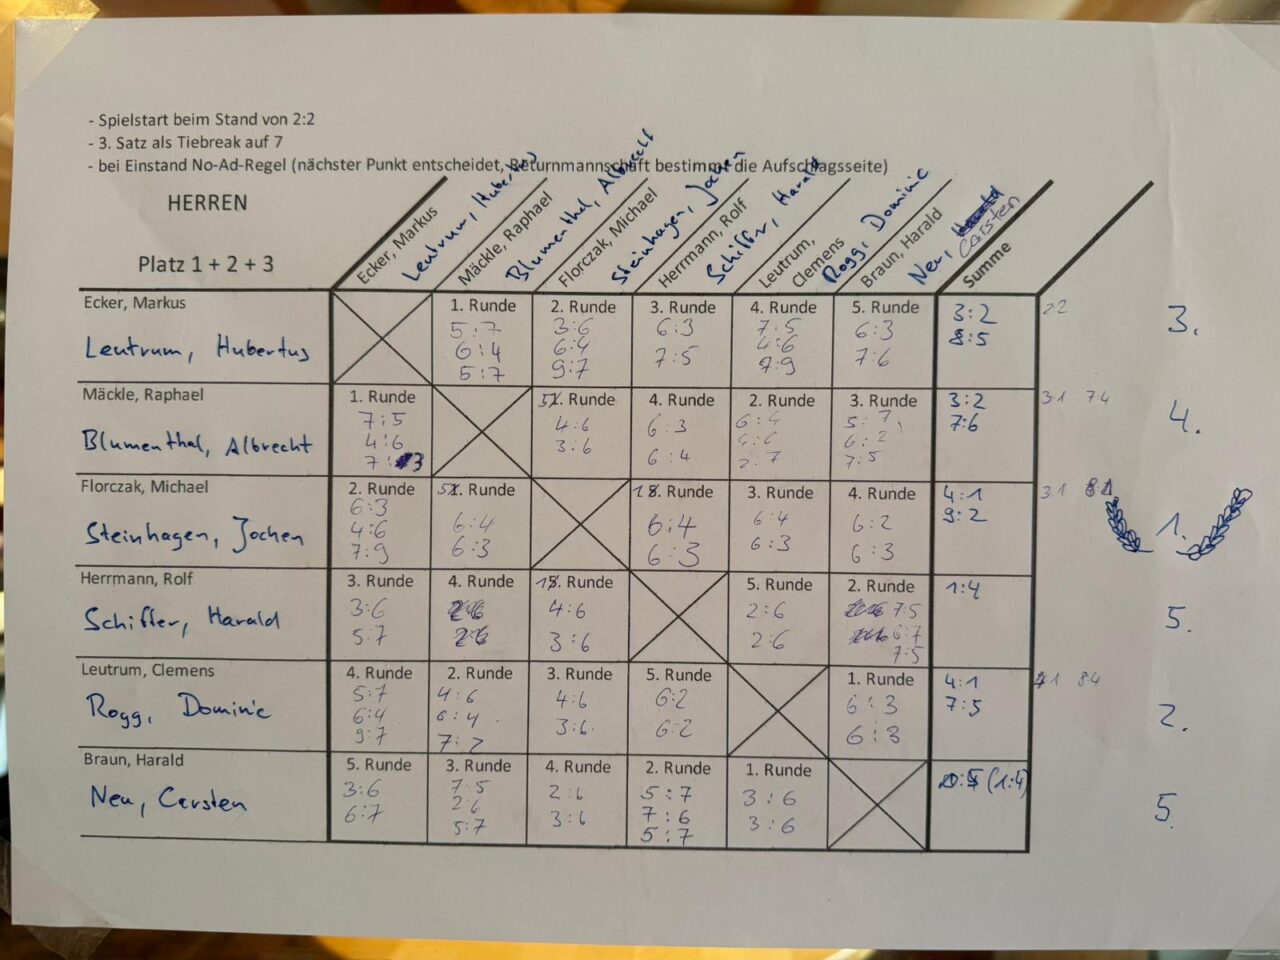 - Spielstart beim Stand von 2:2
- 3. Satz als Tiebreak auf 7
- bei Einstand No-Ad-Regel (nächster Punkt entscheidet, Returnmannschaft bestimmt die Aufschlagsseite)
HERREN
Platz 1 + 2 + 3
Ecker, Markus
Leutrum, Hubertus
Mäckle, Raphael
Blumenthal, Albrecht
Florczak, Michael
Steinhagen, Jochen
Herrmann, Rolf
Schiffer, Harald
Leutrum, Clemens
Rogg, Dominic
Braun, Harald
Neu, Carsten
Summe
Ecker, Markus 1. Runde 2. Runde 3. Runde 4. Runde 5. Runde
Leutrum, Hubertus
5:7 3:6 6:3 7:5 6:3 3:2
6:4 6:4 7:5 4:6 7:6 8:5
5:7 9:7 7:9
3.
Mäckle, Raphael 1. Runde 5. Runde 4. Runde 2. Runde 3. Runde
Blumenthal, Albrecht
7:5 4:6 6:3 6:4 5:7 3:2 31 74
4:6 3:6 6:4 6:2 7:6
7:5
4.
Florczak, Michael 2. Runde 5. Runde 1. Runde 3. Runde 4. Runde
Steinhagen, Jochen
6:3 6:4 6:4 6:4 6:2 4:1 31
4:6 6:3 6:3 6:3 6:3 9:2
7:9
1.
Herrmann, Rolf 3. Runde 4. Runde 1. Runde 5. Runde 2. Runde
Schiffer, Harald
3:6 4:6 2:6 7:5 1:4
5:7 3:6 2:6 6:7
7:5
5.
Leutrum, Clemens 4. Runde 2. Runde 3. Runde 5. Runde 1. Runde
Rogg, Dominic
5:7 4:6 4:6 6:2 6:3 4:1 84
6:4 6:4 3:6 6:2 6:3 7:5
9:7
2.
Braun, Harald 5. Runde 3. Runde 4. Runde 2. Runde 1. Runde
Neu, Carsten
3:6 7:5 2:6 5:7 3:6 (1:4)
6:7 2:6 3:6 7:6 3:6
5:7 5:7
5.